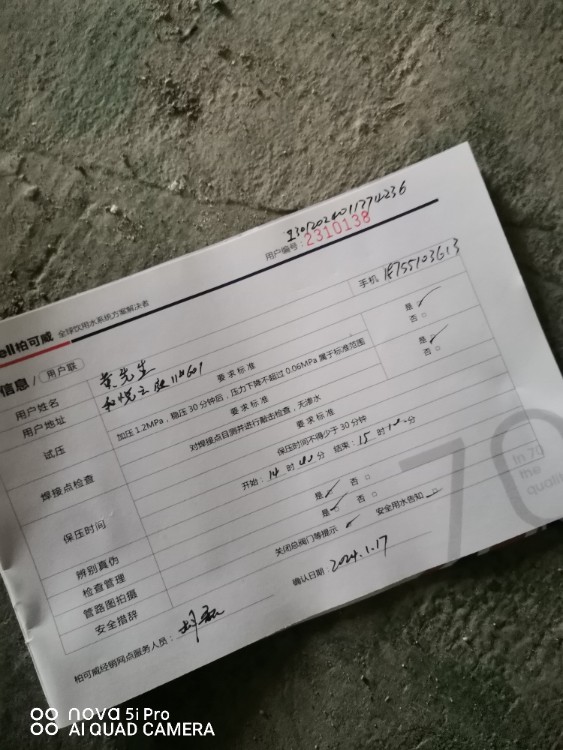 用户编号:2310138
ell柏可威 全球饮用水系统方案解决者
信息/ 用户联
手机
用户姓名 黄先生
用户地址
是 否
试压
要求标准
加压1.2MPa,稳压30分钟后,压力下降不超过0.06MPa属于标准范围
是 否
焊接点检查
要求标准
对焊接点目测并进行敲击检查,无渗水
保压时间
要求标准
保压时间不得少于30分钟
开始: 14 时 40 分 结束: 15 时 10 分
辨别真伪 是 否
检查管理 是 否
管路图拍摄
安全措辞 关闭总阀门等提示 安全用水告知
柏可威经销网点服务人员:
确认日期: 2024.1.17
70
In 70
the
quali
nova 5i Pro
AI QUAD CAMERA